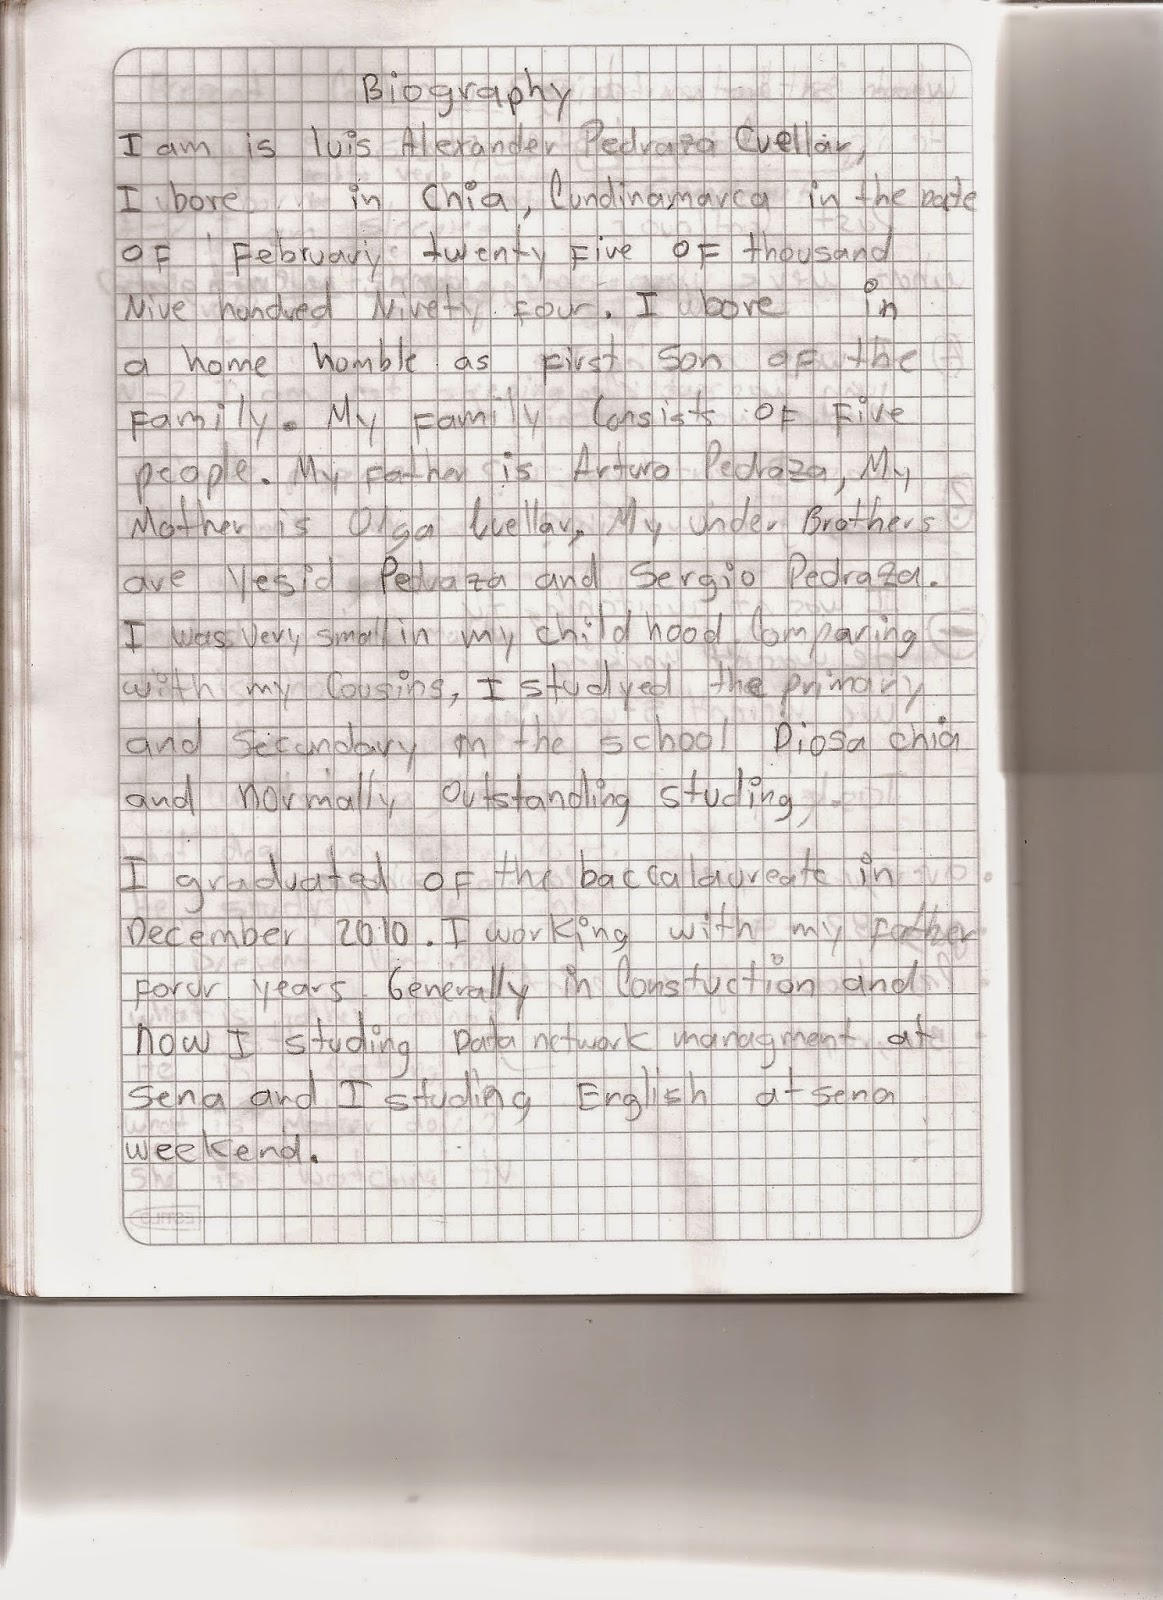 Biography
I am is luis Alexander Pedraza Cuellar,
I bore in Chia, Cundinamarca in the Date
OF February twenty Five OF thousand
Nive hundred Nivety Four. I bore in
a home homble as First Son OF the
Family. My Family Consists OF Five
people. My Father is Arturo Pedraza, My
Mother is Olga Cuellar, My under Brothers
are Yesid Pedraza and Sergio Pedraza.
I was very small in my childhood Comparing
with my Cousins, I studyed the primary
and Secundary in the school Diosa chia
and normally outstanding studing,
I graduated OF the baccalaureate in
December 2010. I working with my Father
Forur years Generally in Constuction and
now I studing Data network managment at
Sena and I studing English at sena
weekend.